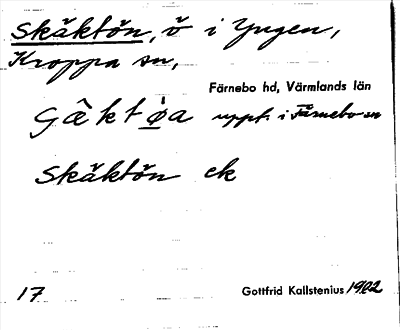 Skäktön, ö i Yngen,
Kroppa sn,
Färnebo hd, Värmlands län
uppt. i Färnebo sn
Skäktön ek
17
Gottfrid Kallstenius 1902